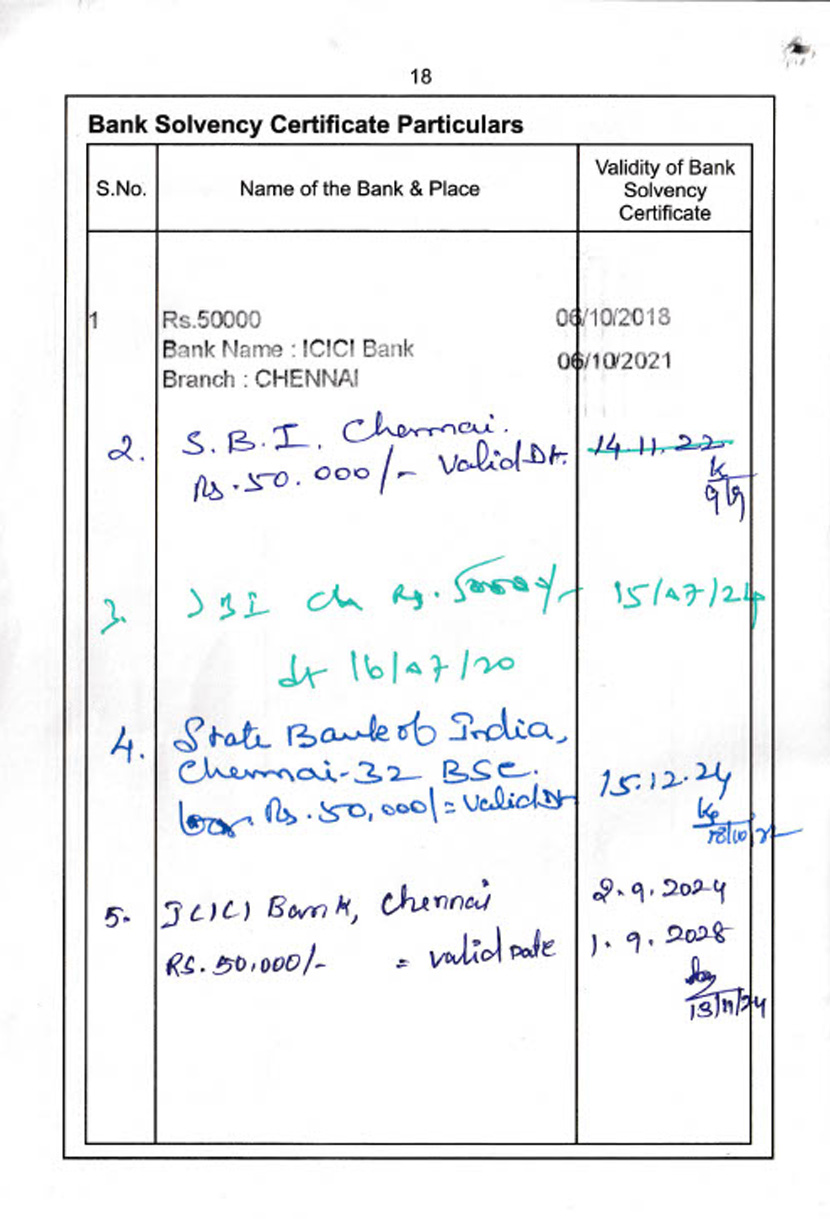 18
Bank Solvency Certificate Particulars
S.No. Name of the Bank & Place Validity of Bank Solvency Certificate
1 Rs.50000 06/10/2018
Bank Name : ICICI Bank
06/10/2021
Branch : CHENNAI
2. S.B.I. Chennai. 14.11.22
Rs.50.000/- Valid Dt.
9/9
3. Rs. 50000/- 15/07/24
dt 16/07/20
4. State Bank of India,
Chennai-32 BSC. 15.12.24
Rs.50,000/= Valid Dt
18/10/22
5. ICICI Bank, Chennai 2.9.2024
RS.50,000/- = valid Date 1.9.2028
13/11/24